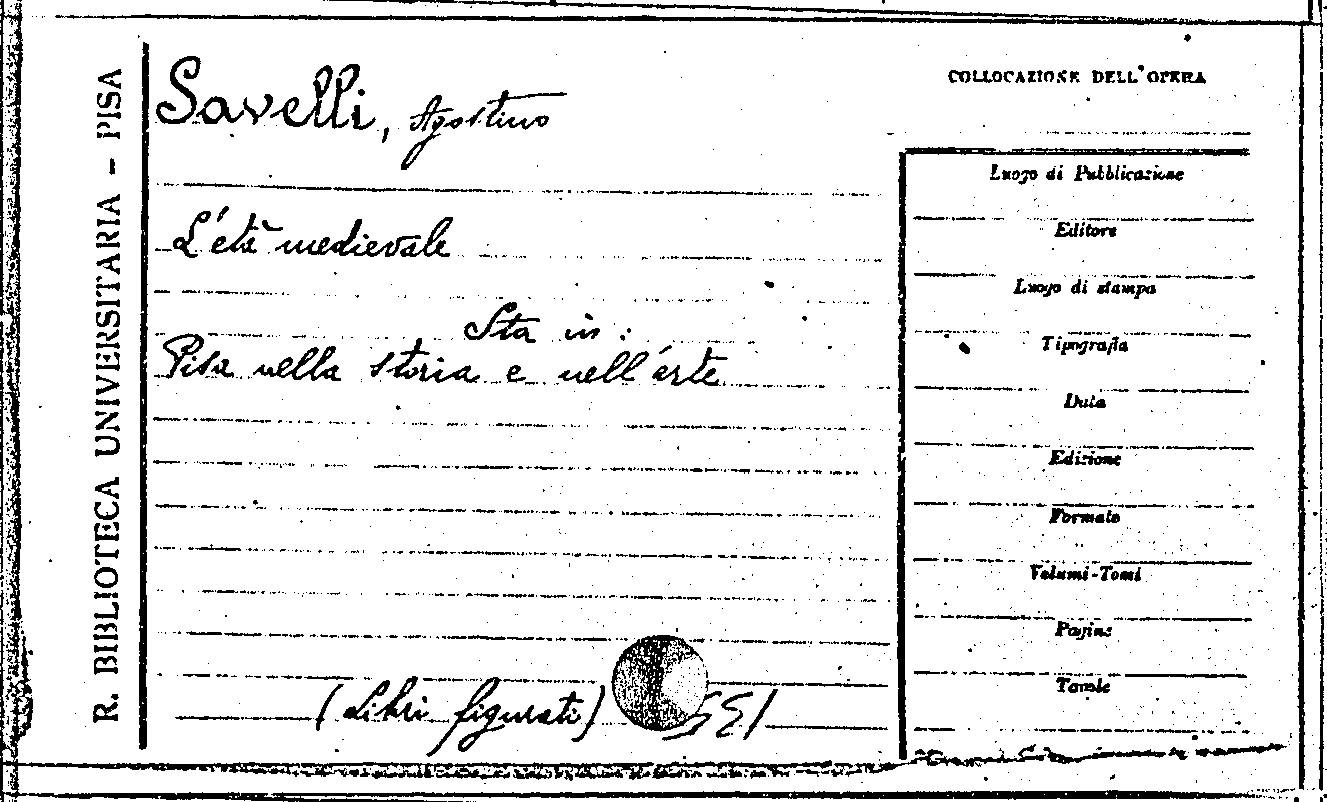 R. BIBLIOTECA UNIVERSITARIA - PISA
Savelli, Agostino
L'età medievale
Sta in:
Pisa nella storia e nell'arte
(Libri figurati)
COLLOCAZIONE DELL'OPERA
Luogo di Pubblicazione
Editore
Luogo di stampa
Tipografia
Data
Edizione
Formato
Volumi-Tomi
Pagine
Tavole